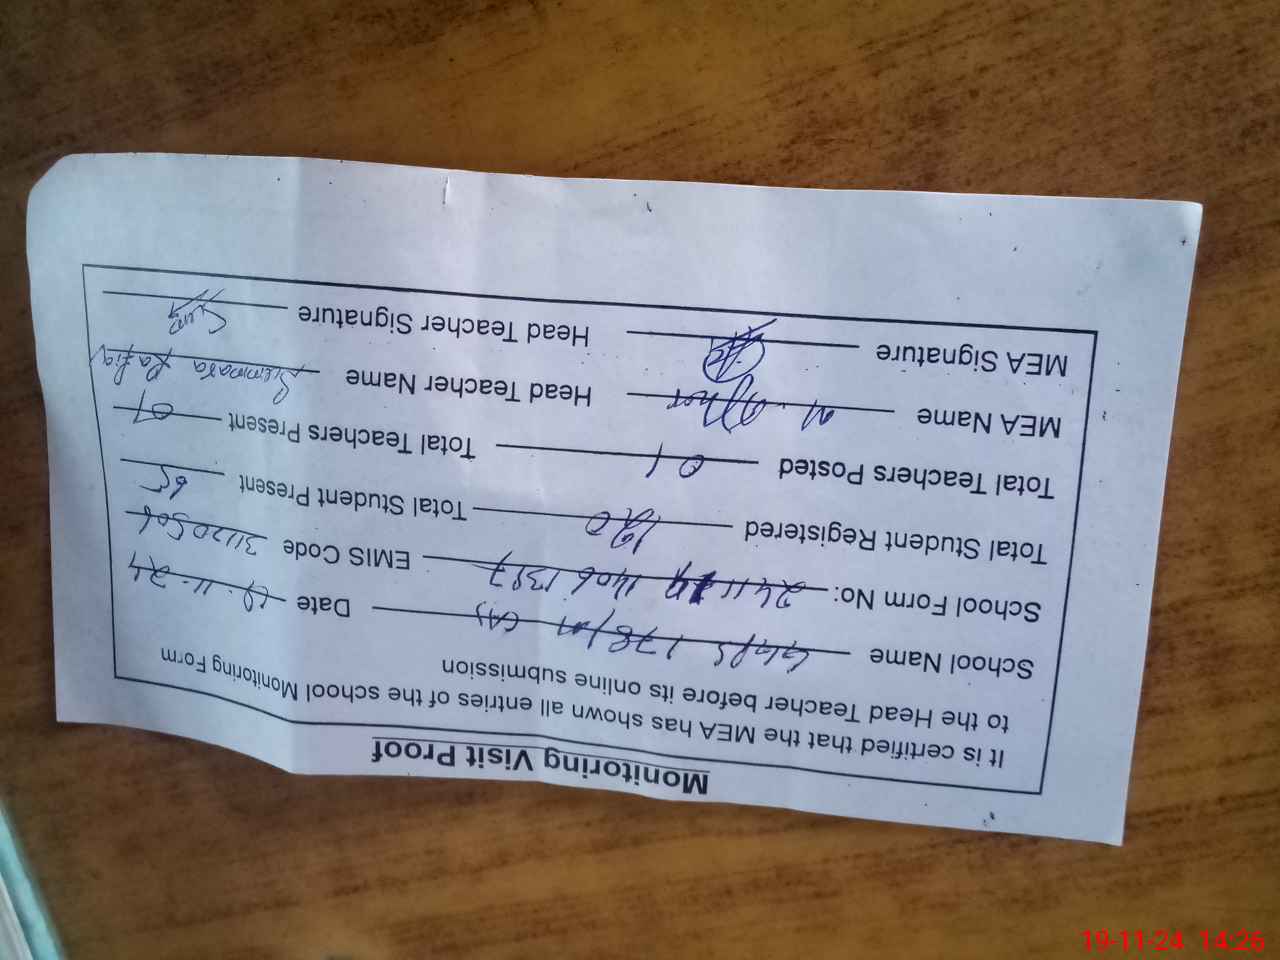 Monitoring Visit Proof
It is certified that the MEA has shown all entries of the school Monitoring Form
to the Head Teacher before its online submission
School Name GGPS 178/M Date 19-11-24
School Form No: 2411 1406 1397 EMIS Code 31120506
Total Student Registered 120 Total Student Present 65
Total Teachers Posted 01 Total Teachers Present 01
MEA Name Head Teacher Name Summara Razia
MEA Signature Head Teacher Signature
19-11-24 14:26